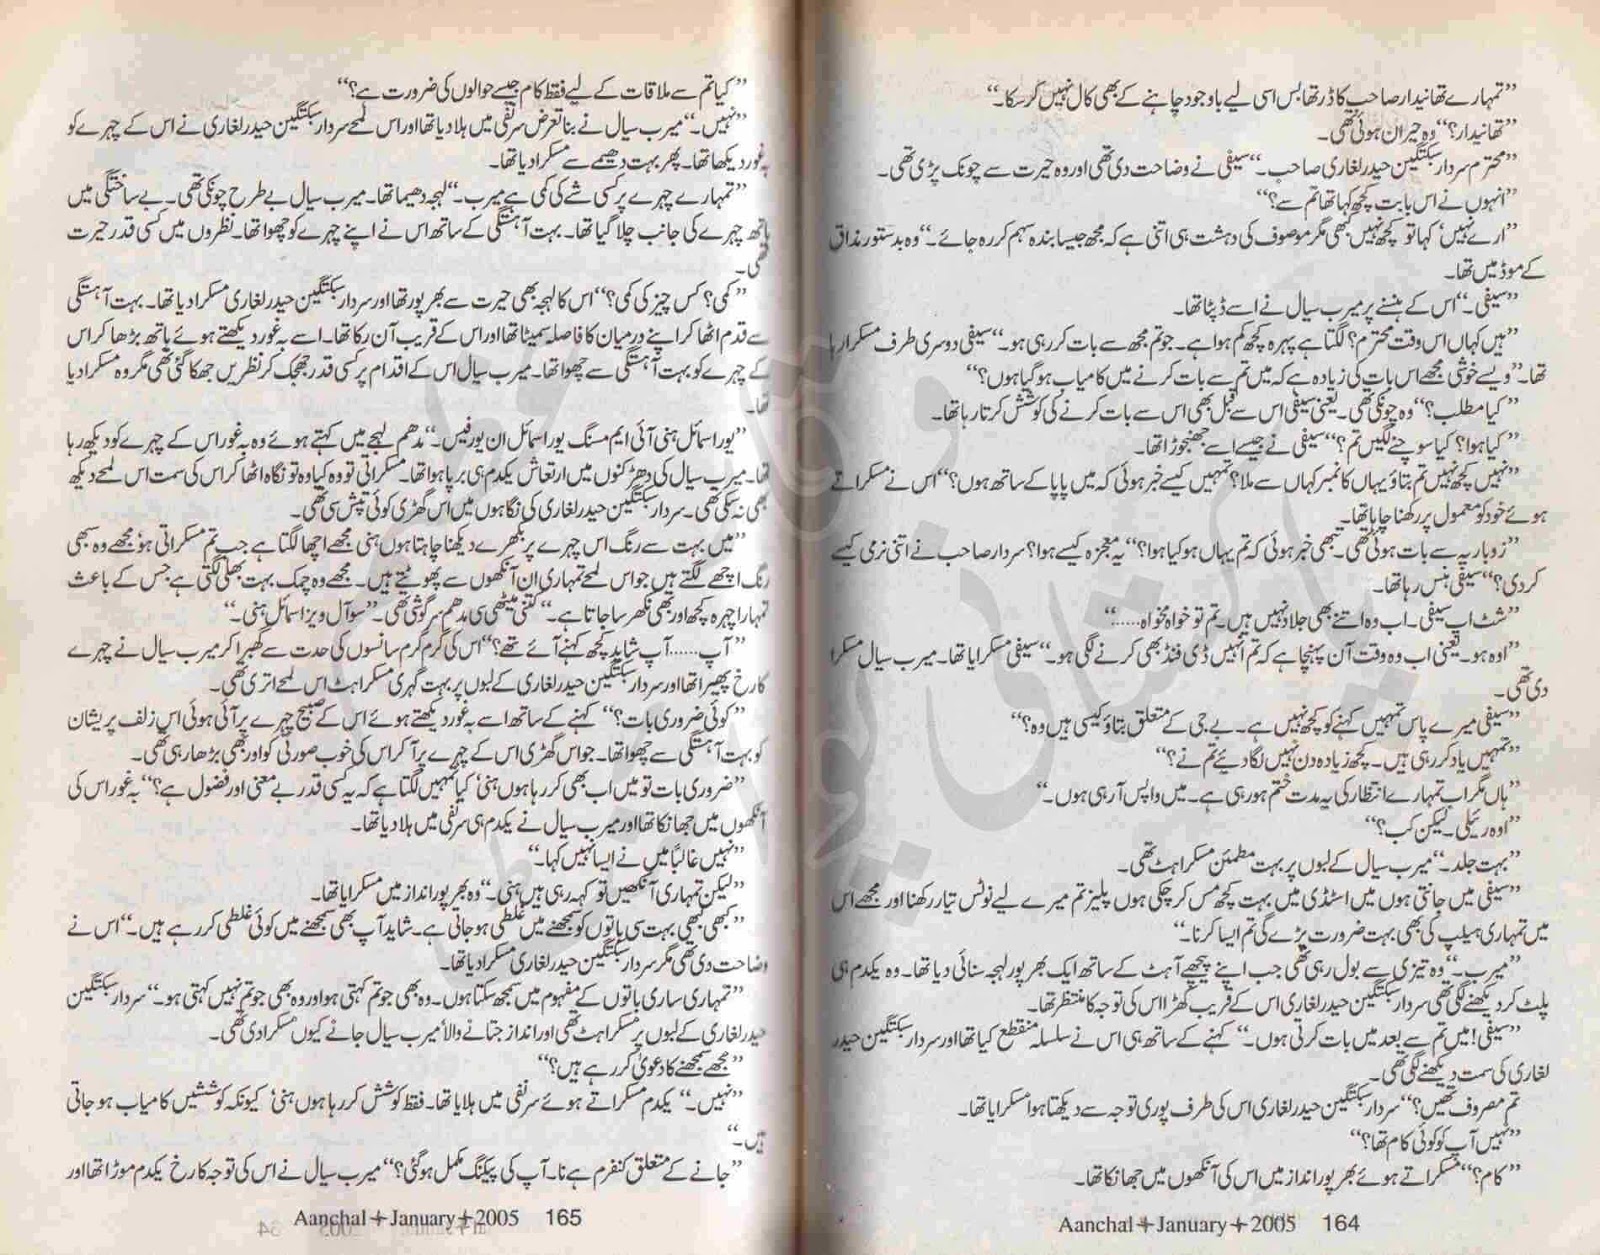 ”تمہارے تھانیدار صاحب کا ڈر تھا بس اسی لیے باوجود چاہنے کے بھی کال نہیں کر سکا۔“
”تھانیدار؟“ وہ حیران ہوئی تھی۔
”محترم سردار سبکتگین حیدر لغاری صاحب۔“ سیفی نے وضاحت دی تھی اور وہ حیرت سے چونک پڑی تھی۔
”انہوں نے اس بابت کچھ کہا تھا تم سے؟“
”ارے نہیں‘ کہا تو کچھ نہیں تھی مگر موصوف کی دہشت ہی اتنی ہے کہ مجھ جیسا بندہ سہم کر رہ جائے۔“ وہ بدستور مذاق
کے موڈ میں تھا۔
”سیفی۔“ اس کے ہنسنے پر میرب سیال نے اسے ڈپٹا تھا۔
”ہیں کہاں اس وقت محترم؟ لگتا ہے پہرہ کچھ کم ہوا ہے۔ جو تم مجھ سے بات کر رہی ہو۔“ سیفی دوسری طرف مسکرا رہا
تھا۔ ”ویسے خوشی مجھے اس بات کی زیادہ ہے کہ میں تم سے بات کرنے میں کامیاب ہو گیا ہوں؟“
”کیا مطلب؟“ وہ چونکی تھی۔ یعنی سیفی اس سے قبل بھی اس سے بات کرنے کی کوشش کرتا رہا تھا۔
”کیا ہوا؟ کیا سوچنے لگیں تم؟“ سیفی نے جیسے اسے جھنجوڑا تھا۔
”نہیں کچھ نہیں تم بتاؤ یہاں کا نمبر کہاں سے ملا؟ تمہیں کیسے خبر ہوئی کہ میں پاپا کے ساتھ ہوں؟“ اس نے مسکراتے
ہوئے خود کو معمول پر رکھنا چاہا تھا۔
”زوباریہ سے بات ہوئی تھی۔ تبھی خبر ہوئی کہ تم یہاں ہو کیا ہوا؟“ یہ معجزہ کیسے ہوا؟ سردار صاحب نے اتنی نرمی کیسے
کر دی؟“ سیفی ہنس رہا تھا۔
”شٹ اپ سیفی۔ اب وہ اتنے بھی جلاد نہیں ہیں۔ تم تو خواہ مخواہ......“
”اوہ ہو۔ یعنی اب وہ وقت آن پہنچا ہے کہ تم انہیں ڈی فنڈ بھی کرنے لگی ہو۔“ سیفی مسکرایا تھا۔ میرب سیال مسکرا
دی تھی۔
”سیفی میرے پاس تمہیں کہنے کو کچھ نہیں ہے۔ بے جی کے متعلق بتاؤ کیسی ہیں وہ؟“
”تمہیں یاد کر رہی ہیں۔ کچھ زیادہ دن نہیں لگا دیئے تم نے؟“
”ہاں مگر اب تمہارے انتظار کی یہ مدت ختم ہو رہی ہے۔ میں واپس آ رہی ہوں۔“
”اوہ رئیلی۔ لیکن کب؟“
”بہت جلد۔“ میرب سیال کے لبوں پر بہت مطمئن مسکراہٹ تھی۔
”سیفی میں جانتی ہوں میں اسٹڈی میں بہت کچھ مس کر چکی ہوں پلیز تم میرے لیے نوٹس تیار رکھنا اور مجھے اس
میں تمہاری ہیلپ کی بھی بہت ضرورت پڑے گی تم ایسا کرنا۔“
”میرب۔“ وہ تیزی سے بول رہی تھی جب اپنے پیچھے آہٹ کے ساتھ ایک بھرپور لہجہ سنائی دیا تھا۔ وہ یکدم ہی
پلٹ کر دیکھنے لگی تھی سردار سبکتگین حیدر لغاری اس کے قریب کھڑا اس کی توجہ کا منتظر تھا۔
”سیفی! میں تم سے بعد میں بات کرتی ہوں۔“ کہنے کے ساتھ ہی اس نے سلسلہ منقطع کیا تھا اور سردار سبکتگین حیدر
لغاری کی سمت دیکھنے لگی تھی۔
تم مصروف تھیں؟“ سردار سبکتگین حیدر لغاری اس کی طرف پوری توجہ سے دیکھتا ہوا مسکرایا تھا۔
”نہیں آپ کو کوئی کام تھا؟“
”کام؟“ مسکراتے ہوئے بھرپور انداز میں اس کی آنکھوں میں جھانکا تھا۔
Aanchal + January + 2005 164
”کیا تم سے ملاقات کے لیے فقط کام جیسے حوالوں کی ضرورت ہے؟“
”نہیں۔“ میرب سیال نے بنا تعرض سر نفی میں ہلا دیا تھا اور اس لمحے سردار سبکتگین حیدر لغاری نے اس کے چہرے کو
بہ غور دیکھا تھا۔ پھر بہت دھیمے سے مسکرا دیا تھا۔
”تمہارے چہرے پر کسی شے کی کمی ہے میرب۔“ لہجہ دھیما تھا۔ میرب سیال بے طرح چونکی تھی۔ بے ساختگی میں
ہاتھ چہرے کی جانب چلا گیا تھا۔ بہت آہستگی کے ساتھ اس نے اپنے چہرے کو چھوا تھا۔ نظروں میں کسی قدر حیرت
تھی۔
”کمی؟ کس چیز کی کمی؟“ اس کا لہجہ بھی حیرت سے بھرپور تھا اور سردار سبکتگین حیدر لغاری مسکرا دیا تھا۔ بہت آہستگی
سے قدم اٹھا کر اپنے درمیان کا فاصلہ سمیٹا تھا اور اس کے قریب آن رکا تھا۔ اسے بہ غور دیکھتے ہوئے ہاتھ بڑھا کر اس
کے چہرے کو بہت آہستگی سے چھوا تھا۔ میرب سیال اس کے اقدام پر کسی قدر جھجک کر نظریں جھکا گئی تھی مگر وہ مسکرا دیا
تھا۔
”یور اسمائل ہنی آئی ایم مسنگ یور اسمائل ان یور فیس۔“ مدھم لہجے میں کہتے ہوئے وہ بہ غور اس کے چہرے کو دیکھ رہا
تھا۔ میرب سیال کی دھڑکنوں میں ارتعاش یکدم ہی برپا ہوا تھا۔ مسکراتی تو وہ کیا وہ تو نگاہ اٹھا کر اس کی سمت اس لمحے دیکھ
بھی نہ سکی تھی۔ سردار سبکتگین حیدر لغاری کی نگاہوں میں اس گھڑی کوئی تپش سی تھی۔
”میں بہت سے رنگ اس چہرے پر بکھرے دیکھنا چاہتا ہوں ہنی مجھے اچھا لگتا ہے جب تم مسکراتی ہو مجھے وہ سبھی
رنگ اچھے لگتے ہیں جو اس لمحے تمہاری ان آنکھوں سے پھوٹتے ہیں۔ مجھے وہ چمک بہت بھلی لگتی ہے جس کے باعث
تمہارا چہرہ کچھ اور بھی نکھر سا جاتا ہے۔“ کتنی میٹھی سی مدھم سرگوشی تھی۔ ”سو آل ویز اسمائل ہنی۔“
”آپ...... آپ شاید کچھ کہنے آئے تھے؟“ اس کی گرم گرم سانسوں کی حدت سے گھبرا کر میرب سیال نے چہرے
کا رخ پھیرا تھا اور سردار سبکتگین حیدر لغاری کے لبوں پر بہت گہری مسکراہٹ اس لمحے اتری تھی۔
”کوئی ضروری بات؟“ کہنے کے ساتھ اسے بہ غور دیکھتے ہوئے اس کے صبیح چہرے پر آئی ہوئی اس زلف پریشان
کو بہت آہستگی سے چھوا تھا۔ جو اس گھڑی اس کے چہرے پر آ کر اس کی خوب صورتی کو اور بھی بڑھا رہی تھی۔
”ضروری بات تو میں اب بھی کر رہا ہوں ہنی‘ کیا تمہیں لگتا ہے کہ یہ کسی قدر بے معنی اور فضول ہے؟“ بہ غور اس کی
آنکھوں میں جھانکا تھا اور میرب سیال نے یکدم ہی سر نفی میں ہلا دیا تھا۔
”نہیں غالباً میں نے ایسا نہیں کہا۔“
”لیکن تمہاری آنکھیں تو کہہ رہی ہیں ہنی۔“ وہ بھرپور انداز میں مسکرایا تھا۔
”کبھی کبھی بہت سی باتوں کو سمجھنے میں غلطی ہو جاتی ہے۔ شاید آپ بھی سمجھنے میں کوئی غلطی کر رہے ہیں۔“ اس نے
وضاحت دی تھی مگر سردار سبکتگین حیدر لغاری مسکرا دیا تھا۔
”تمہاری ساری باتوں کے مفہوم میں سمجھ سکتا ہوں۔ وہ بھی جو تم کہتی ہو اور وہ بھی جو تم نہیں کہتی ہو۔“ سردار سبکتگین
حیدر لغاری کے لبوں پر مسکراہٹ تھی اور انداز جتانے والا‘ میرب سیال جانے کیوں مسکرا دی تھی۔
”مجھے سمجھنے کا دعویٰ کر رہے ہیں؟“
”نہیں۔“ یکدم مسکراتے ہوئے سر نفی میں ہلایا تھا۔ فقط کوشش کر رہا ہوں ہنی‘ کیونکہ کوششیں کامیاب ہو جاتی
ہیں۔“
”جانے کے متعلق کنفرم ہے نا۔ آپ کی پیکنگ مکمل ہو گئی؟“ میرب سیال نے اس کی توجہ کا رخ یکدم موڑا تھا اور
Aanchal + January + 2005 165